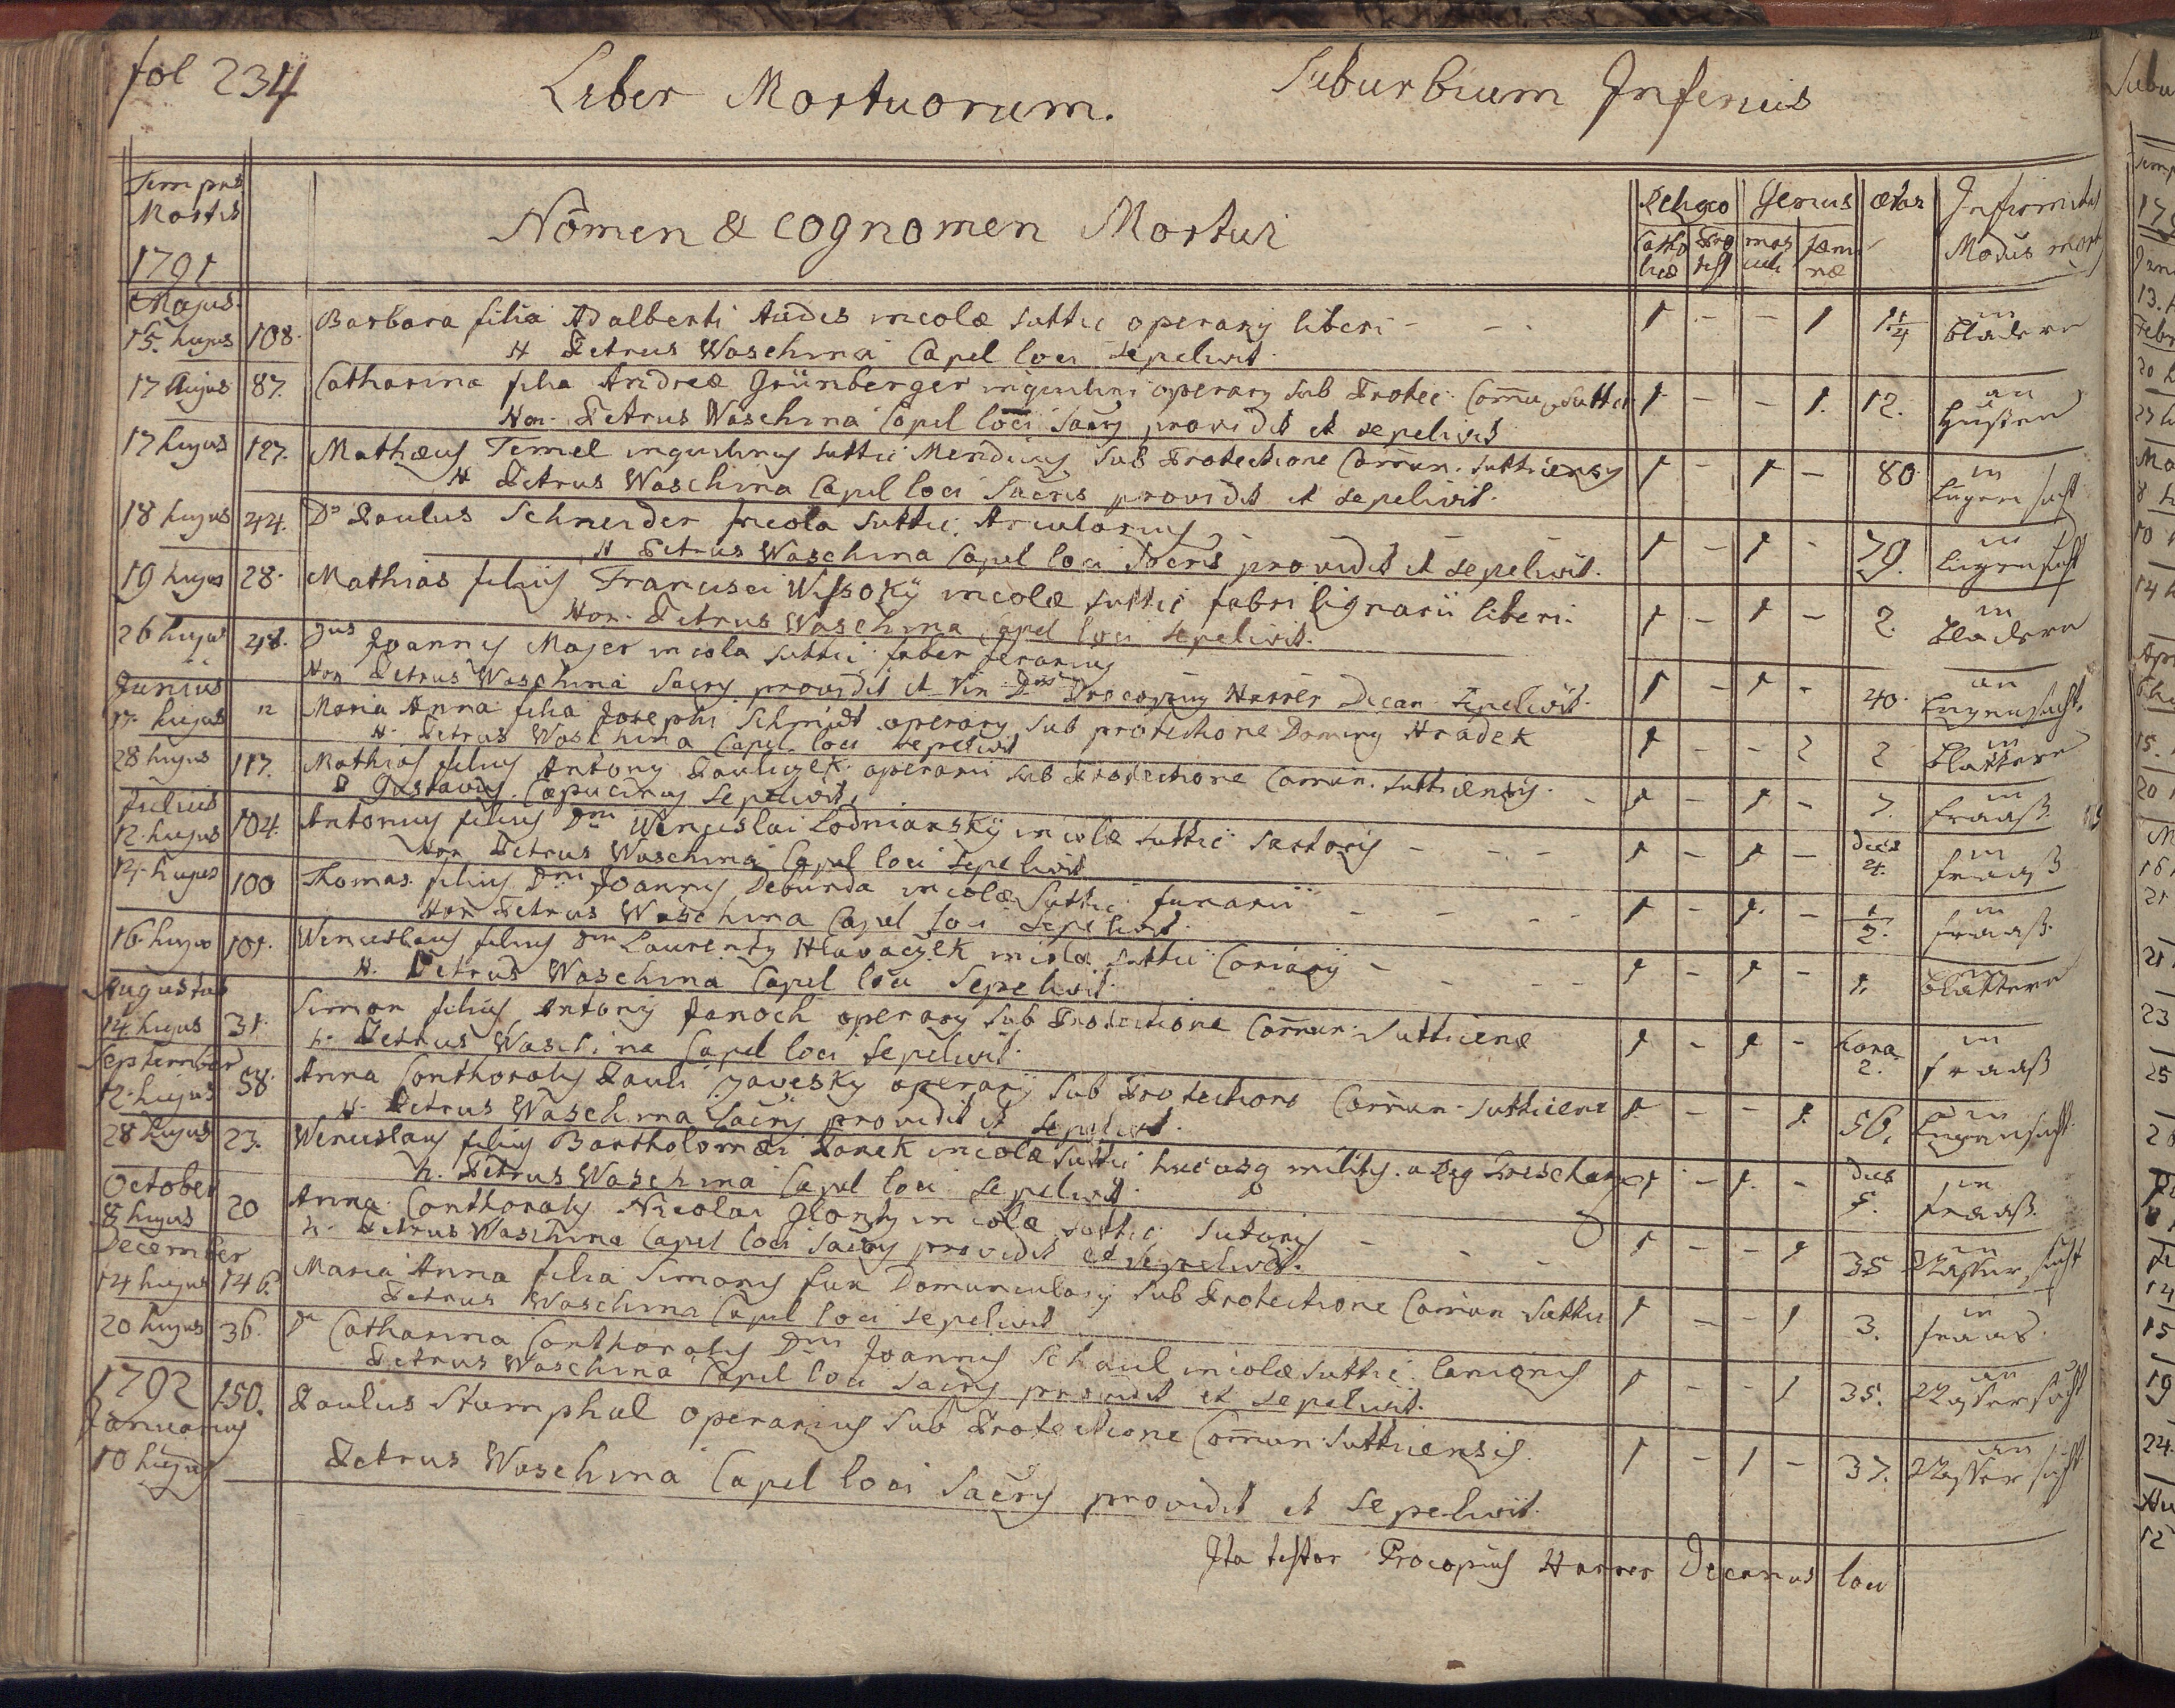 fol 234 Liber Mortuorum. Suburbium Inferius
Tempus Mortis Nomen & cognomen Mortui Religio Genus ætas Infirmitas
Catholicæ Protest masculi fæminæ Modus mort
1791
Majus
15. hujus 108. Barbara filia Adalberti Audes incolæ Suttic operarij liberi - - - 1 - - 1 1 1/4 in Bladern
H Petrus Waschina Capel loci Sepelivit.
17 hujus 87. Catharina filia Andreæ Grünberger inquilini operarij Sub Protec. Comu. Suttic 1 - - 1. 12. an Husten
Hon. Petrus Waschina Capel loci Sacris providit et sepelivit
17 hujus 127. Mathæus Temel inquilinus Suttic Mendicus Sub Protectione Comun. Sutticensis 1 - 1 - 80 in Lungensucht
H Petrus Waschina Capel loci Sacris providit et sepelivit.
18 hujus 44. Ds Paulus Schneider Incola Suttic. Arcularius - - 1 - 1 - 79. in Lungensucht
H Petrus Waschina Capel loci Sacris providit et sepelivit.
19 hujus 28. Mathias filius Francisci Wissoky incolæ Suttic fabri lignarii liberi. 1 - 1 - 2. in Bladern
Hon. Petrus Waschina Capel loci sepelivit.
26 hujus 48. Dus Joannes Majer incola Suttic. faber ferarius 1 - 1 - 40. an Lungensucht.
Hon Petrus Waschina Sacris providit et Vin. Dnus Procopius Harrer Decan. Sepelivit.
Junius
17. hujus 12 Maria Anna filia Josephi Schmidt operarij sub protectione Dominij Hradek 1 - - 2 2 in Blattern
H. Petrus Waschina Capel. loci sepelivit
28 hujus 117. Mathias filius Antonij Pauliczek operarii sub Protectione Comun. Sutticensis. - 1 - 1. - 7. in Fraaß.
P Gustavus Capucinus Sepelivit.
Julius
12. hujus 104. Antonius filius Dni Wenceslai Lodnianskÿ incolæ Suttic Sartoris - - - 1 - 1 - dies 4. in Fraaß
Hon Petrus Waschina Capel loci Sepelivit
14. hujus 100 Thomas filius Dni Joannis Deburda incolæ Suttic. funarii - - - - 1 - 1. - 1/2. in Fraaß.
Hon Petrus Waschina Capel loci Sepelivit.
16. hujus 101. Wenceslaus filius Dni Laurentij Hlavaczek incolæ Suttic Coriarij - - - - 1 - 1 - 1. in Blattern
H. Petrus Waschina Capel loci Sepelivit.
Augustus
14 hujus 31. Simon filius Antonij Janoch operarij Sub Protectione Comun. Sutticenæ 1 - 1 - hora 2. in Fraaß
h. Petrus Waschina Capel loci sepelivit.
September
12. hujus 58. Anna Conthoralis Pauli operarij Sub Protectione Comun. Sutticenæ 1. - - 1. 56. an Lungensucht.
H. Petrus Waschina Sacris providit et sepelivit.
28 hujus 23. Wenceslaus filius Bartholomæi Panek incolæ Suttic hucusq militis. 1 - 1. - Dies 5. in Fraaß.
h. Petrus Waschina Capel loci Sepelivit.
October
8 hujus 20 Anna Conthoralis Nicolai incolæ Suttic Sutoris - - - 1 - - 1 35 an Wassersucht
h. Petrus Waschina Capel loci Sacris providit et Sepelivit.
December
14 hujus 146. Maria Anna filia Simonis Fux Domunculary Sub Protectione Comun Suttic 1 - - 1 3. in Fraas.
Petrus Waschina Capel loci sepelivit
20 hujus 36. Da Catharina Conthoralis Dni Joannis Schaul incolæ Suttic. Lanionis 1 - - 1 35. an Wassersucht
Petrus Waschina Capel loci Sacris providit et sepelivit.
1792 150. Paulus Stumphal operarius Sub Protectione Comun. Sutticensis. 1 - 1 - 37. an Wassersucht
Januarius
10 hujus Petrus Waschina Capel loci Sacris providit et Sepelivit.
Ita testor Procopius Harrer Decanus loci